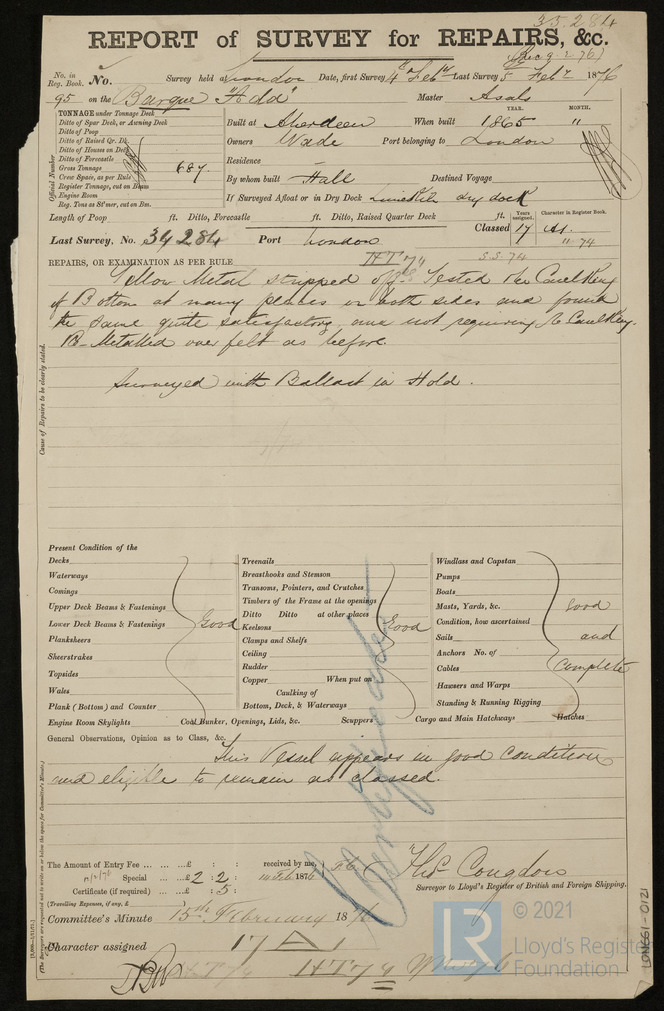 35,284
REPORT of SURVEY for REPAIRS, &c.
(Rec 9 2 76)
No. in Reg. Book. No. Survey held at London Date, first Survey 4th Feby Last Survey 5 Feby 1876
95 on the Barque "Ada" Master
TONNAGE under Tonnage Deck
Ditto of Spar Deck, or Awning Deck
Ditto of Poop
Ditto of Raised Qr. Dk.
Ditto of Houses on Deck
Ditto of Forecastle
Gross Tonnage 687.
Crew Space, as per Rule
Register Tonnage, cut on Beam
Engine Room
Reg. Tons as St'mer, cut on Bm.
Official Number
YEAR. MONTH.
Built at Aberdeen When built 1865 "
Owners Wade Port belonging to London
Residence
By whom built Hall Destined Voyage
If Surveyed Afloat or in Dry Dock Limekiln dry dock
Length of Poop ft. Ditto, Forecastle ft. Ditto, Raised Quarter Deck ft.
Years assigned. Character in Register Book.
Classed 17 A1.
11-74
Last Survey, No. 34284 Port London
S.S. 74
REPAIRS, OR EXAMINATION AS PER RULE
Yellow Metal stripped off. Tested the Caulking
of Bottom at many places on both sides and found
the same quite satisfactory, and not requiring Re Caulking.
Re-Metalled over felt as before.
Surveyed with Ballast in Hold.
Cause of Repairs to be clearly stated.
Present Condition of the
Decks
Waterways
Comings
Upper Deck Beams & Fastenings
Lower Deck Beams & Fastenings
Planksheers
Sheerstrakes
Topsides
Wales
Plank (Bottom) and Counter
Good
Treenails
Breasthooks and Stemson
Transoms, Pointers, and Crutches
Timbers of the Frame at the openings
Ditto Ditto at other places
Keelsons
Clamps and Shelfs
Ceiling
Rudder
Copper When put on
Caulking of
Bottom, Deck, & Waterways
Good
Windlass and Capstan
Pumps
Boats
Masts, Yards, &c.
Condition, how ascertained
Sails
Anchors No. of
Cables
Hawsers and Warps
Standing & Running Rigging
Good
and
Complete
Engine Room Skylights Coal Bunker, Openings, Lids, &c. Scuppers Cargo and Main Hatchways Hatches
General Observations, Opinion as to Class, &c.
This Vessel appears in good condition
and eligible to remain as classed.
Certificate
The Amount of Entry Fee ... ... ... £ : : received by me,
Special ... £ 2 : 2 : 1876
Certificate (if required) ... £ : 5 :
(Travelling Expenses, if any, £ )
Thos Congdon
Surveyor to Lloyd's Register of British and Foreign Shipping.
Committee's Minute 15th February 1876
Character assigned 17 A 1
(The Surveyors are requested not to write on or below the space for Committee's Minute.)
© 2021
LR
Lloyd's Register
Foundation
LON661-0121